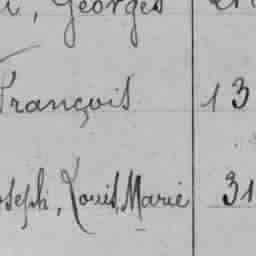 Georges
François 13
Joseph, Louis, Marie 31